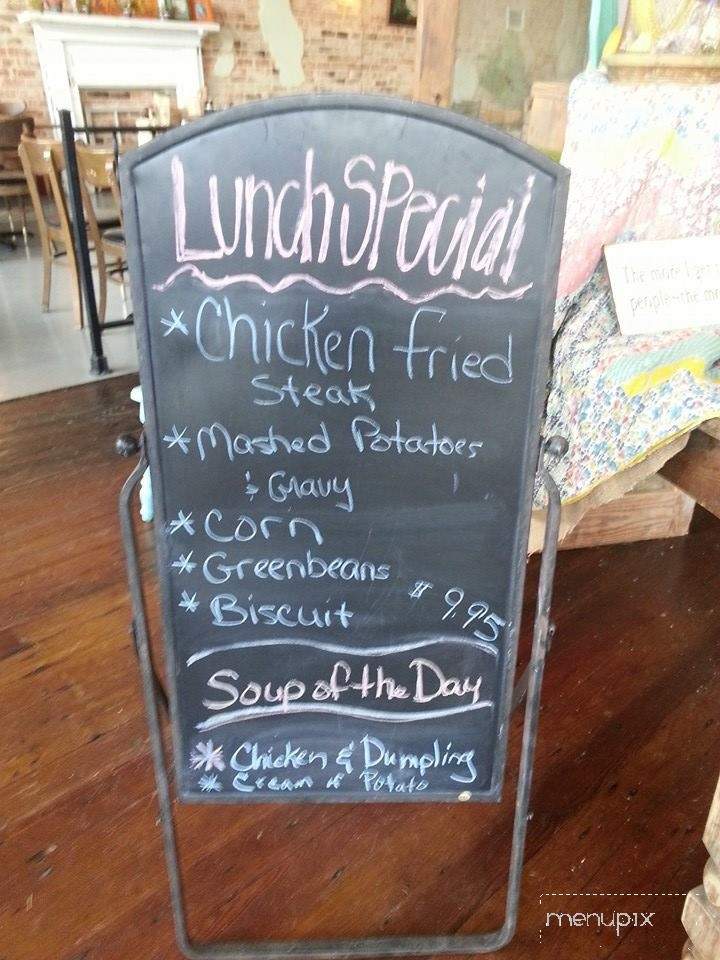 Lunch Special
* Chicken fried
Steak
* Mashed Potatoes
& Gravy
* Corn
* Greenbeans
* Biscuit $9.95
Soup of the Day
* Chicken & Dumpling
* Cream of Potato
The more I get
people the mo
menupix